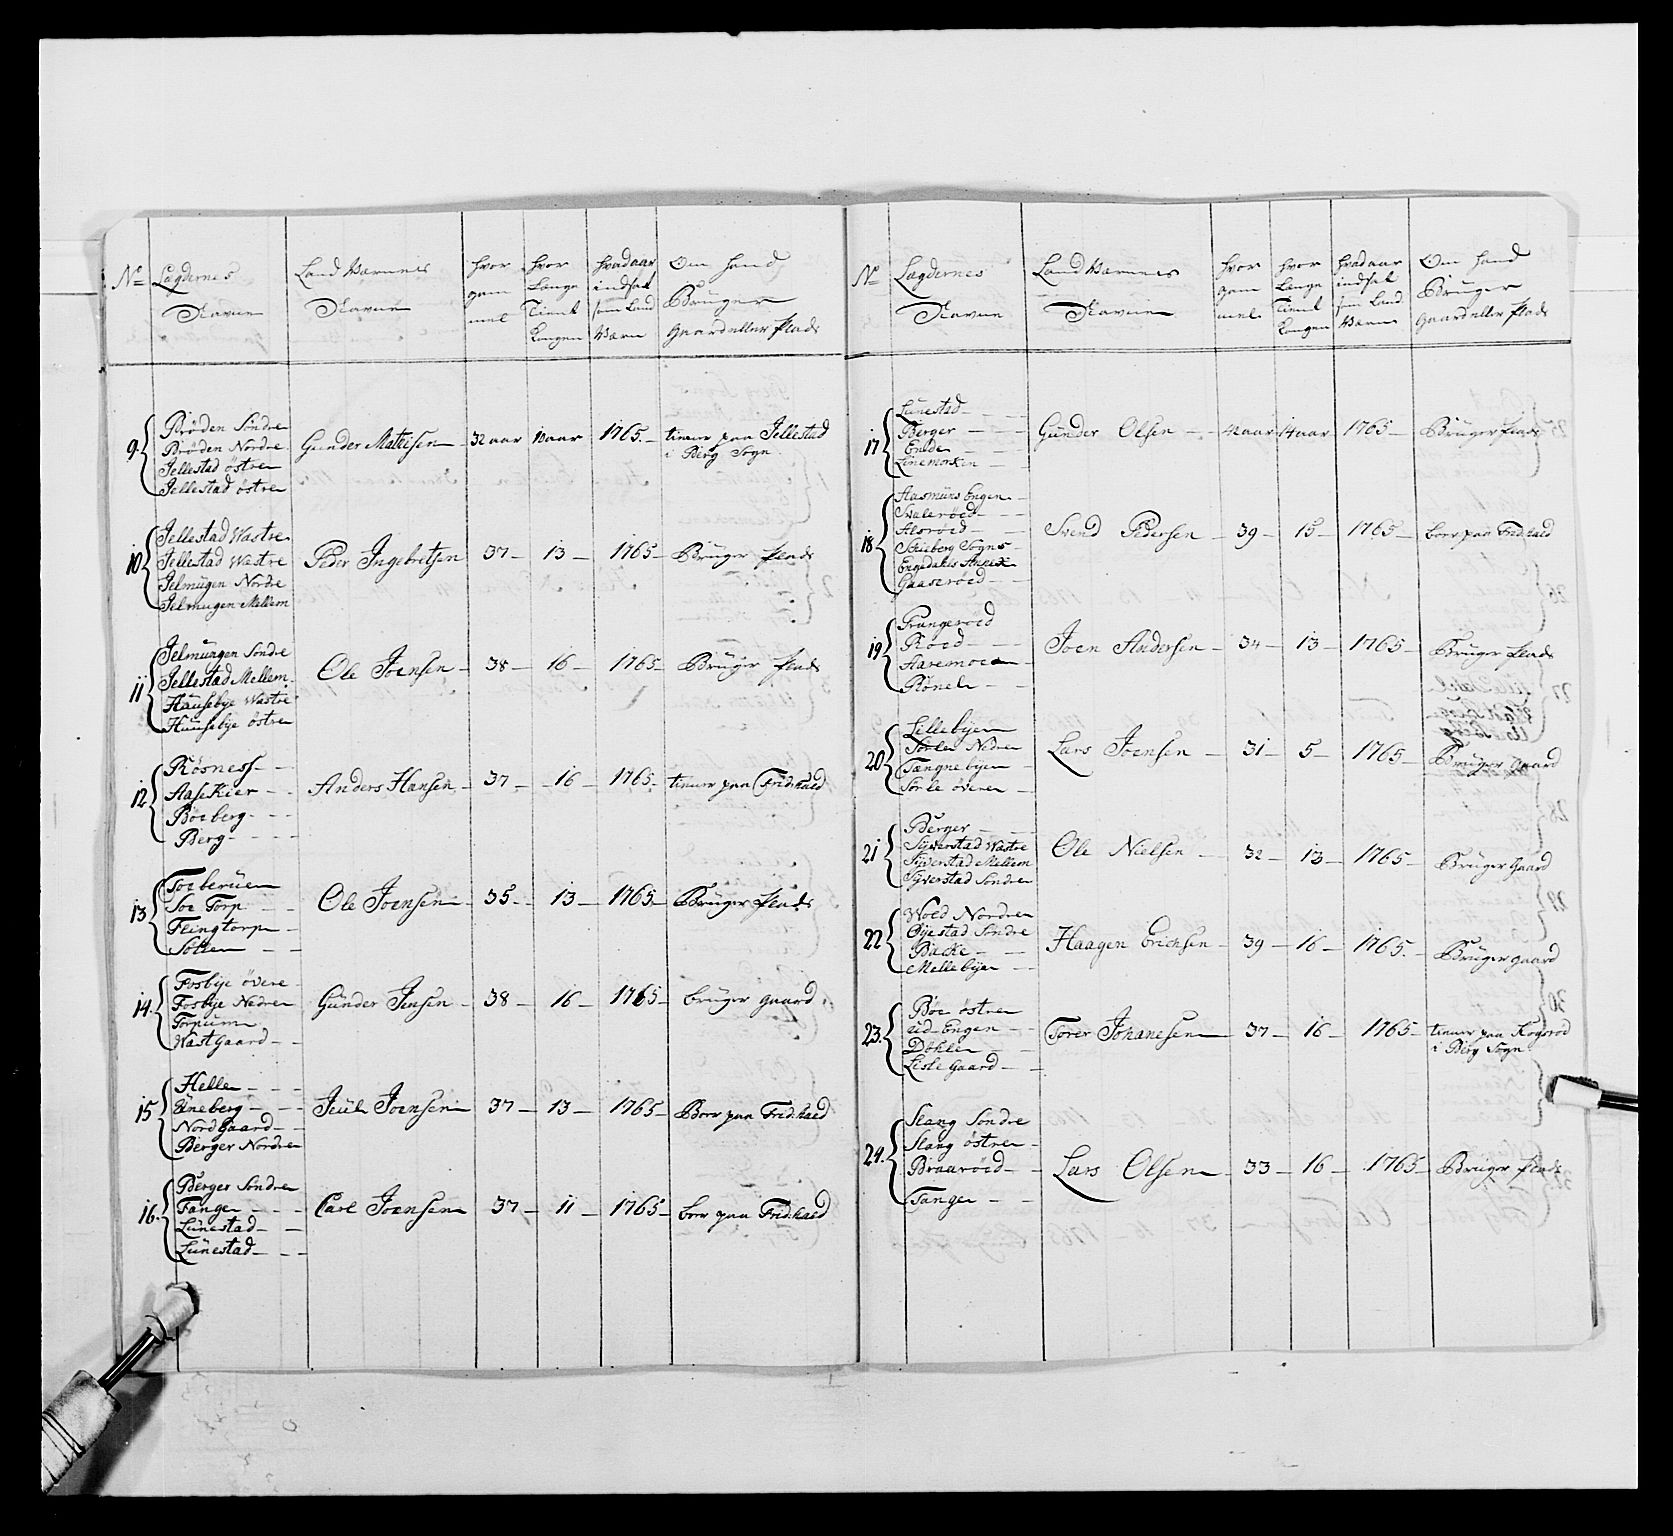 No Lægdernes Navne
Land Værnes Navne
hvor gammel
hvor Længe Tient Kongen
hvad aar indsat som Land Værn
Om hand Bruger Gaard eller Plads
9.
Brøden Söndre
Brøden Nordre
Jellestad östre
Jellestad östre
Gunder Matisen 32 aar 10 aar 1765 tiener paa Jellestad
i Berg Sogn
10
Jellestad Wastre
Jellestad Wastre
Jelmugen Nordre
Jelmugen Mellem
Peder Ingebretsen 37 13 1765 Bruger Plads
11
Jelmungen Söndre
Jellestad Mellem
Hausebye Wastre
Hunsebye östre
Ole Joensen 38 16 1765 Bruger Plads
12
Røsness
Aase Kier
Böe berg
Berg
Anders Hansen 37 16 1765 tiener paa Fridrhald
13
Toe berüen
Soe Torp
Flingtorp
Solten
Ole Joensen 35 13 1765 Bruger Plads
14
Fosbye övere
Fosbye Nedre
Torpum
Wastgaard
Günder Jensen 38 16 1765 bruger gaard
15
Helle
Üneberg
Nordgaard
Berger Nordre
Juul Joensen 37 13 1765 Boer paa Fridrhald
16
Berger Söndre
Tanger
Lünestad
Lünestad
Carl Joensen 37 11 1765 boer paa Fridrhald
No Lægdernes Navne
Land Værnes Navne
hvor gammel
hvor Længe Tient Kongen
hvad aar indsat som Land Værn
Om hand Bruger Gaard eller Plads
17
Lunestad
Berger
Ende
Linemoxen
Günder Olsen 42 aar 14 aar 1765 Bruger Plads
18
Aasmüns Engen
Svaleröed
Alsröed
Skieberg Sogns
Engedahls Annex
Gaaseröed
Svend Pedersen 39 15 1765 boer paa Fridrhald
19
Prangeroed
Roed
Haremoen
Rönel
Joen Andersen 34 13 1765 Bruger Plads
20
Lillebyen
Sörlee Nedre
Tangnebyen
Sörle övere
Lars Joensen 31 5 1765 Bruger Gaard
21
Berger
Syverstad Wastre
Syverstad Mellem
Syverstad Söndre
Ole Nielsen 32 13 1765 Bruger Gaard
22
Wold Nordre
Öyestad Söndre
Backe
Mellebyen
Haagen Erichsen 39 16 1765 Bruger gaard
23.
Böe östre
ued Engen
Döhlen
Lisle Gaard
Torer Johanesen 37 16 1765 tiener paa Kogsrod
i Berg Sogn
24.
Stang Söndre
Stang östre
Braaröed
Tanger
Lars Olsen 33 16 1765 Bruger Plads